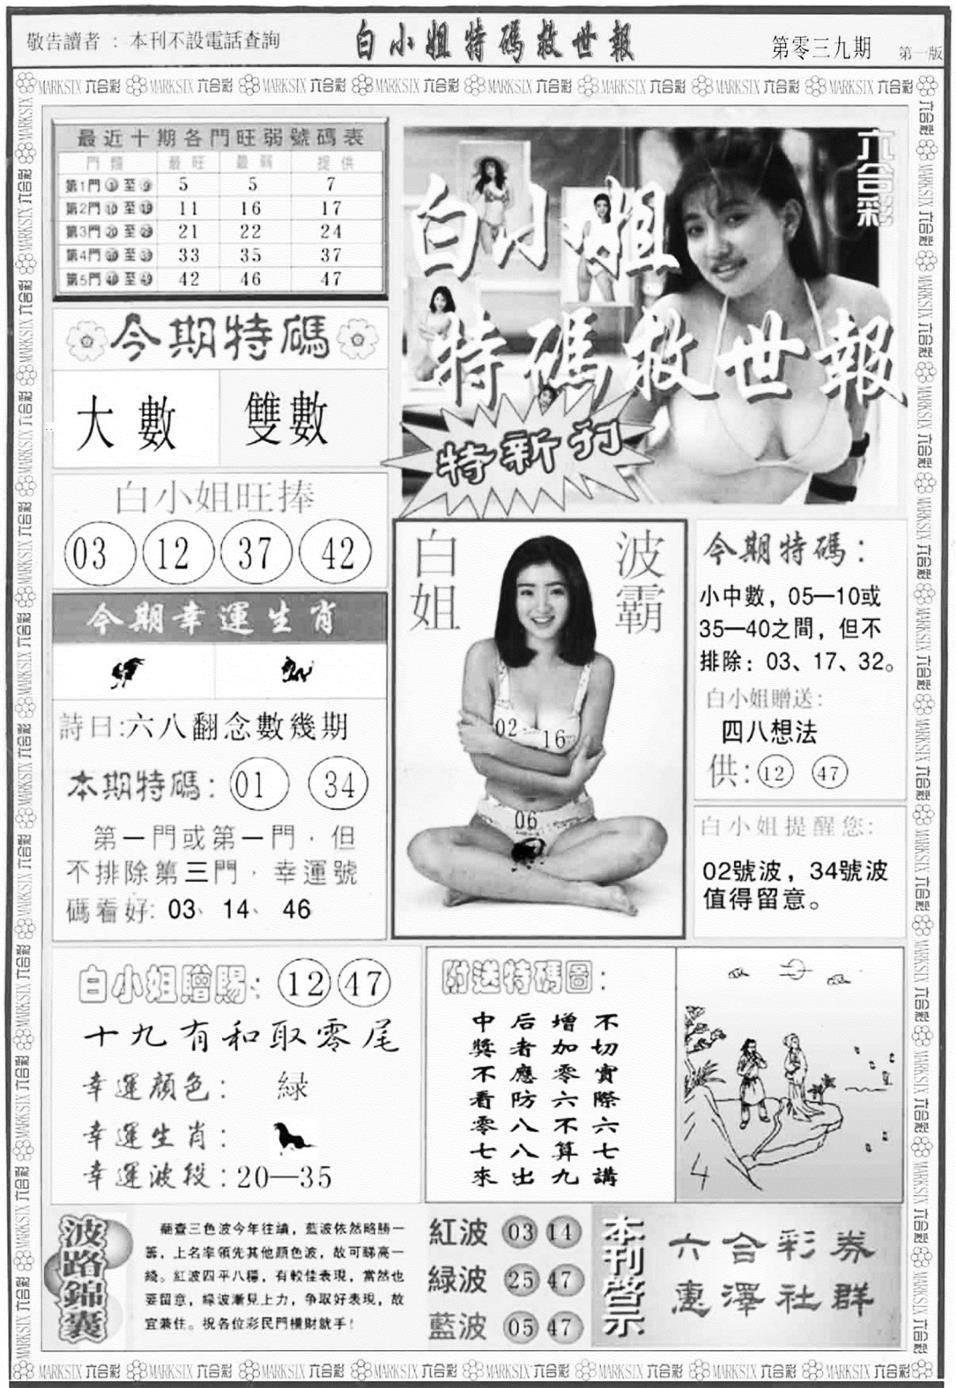 敬告讀者 : 本刊不設電話查詢
白小姐特碼救世報
第零三九期
第一版
MARKSIX 六合彩
最近十期各門旺弱號碼表
門類 最旺 最弱 提供
第1門 ① 至 ⑨ 5 5 7
第2門 ⑩ 至 ⑲ 11 16 17
第3門 ⑳ 至 ㉙ 21 22 24
第4門 ㉚ 至 ㊴ 33 35 37
第5門 ㊵ 至 ㊾ 42 46 47
今期特碼
大數 雙數
白小姐旺捧
03 12 37 42
今期幸運生肖
詩曰:六八翻念數幾期
本期特碼: 01 34
第一門或第一門，但
不排除第三門，幸運號
碼看好: 03、14、46
六合彩
白小姐
特碼救世報
特新刊
白姐
波霸
02 16
06
今期特碼：
小中數，05—10或
35—40之間，但不
排除：03、17、32。
白小姐贈送:
四八想法
供: 12 47
白小姐提醒您:
02號波，34號波
值得留意。
白小姐贈賜: 12 47
十九有和取零尾
幸運顏色: 緑
幸運生肖:
幸運波段:20—35
附送特碼圖:
不切實際六七講
增加零六不算九
后者應防八八出
中獎不看零七來
4
波路錦囊
蘭查三色波今年往績，藍波依然略勝一
籌，上名率領先其他顏色波，故可睇高一
綫。紅波四平八穩，有較佳表現，當然也
要留意，緑波漸見上力，争取好表現，故
宜兼住。祝各位彩民門横財就手!
紅波 03 14
緑波 25 47
藍波 05 47
本刊營示
六合彩券
惠澤社群